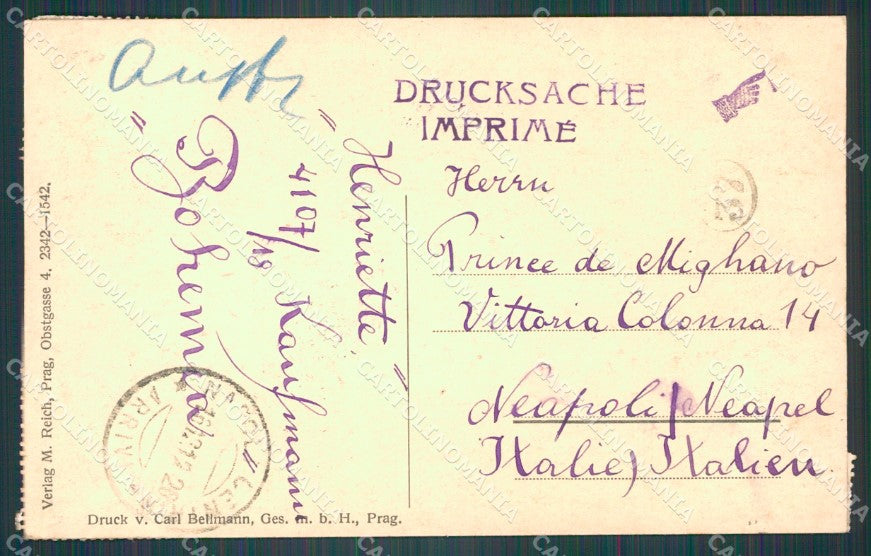 DRUCKSACHE
IMPRIMÉ
Herrn
Prince de Mighano
Vittoria Colonna 14
Neapoli/Neapel
Italie) Italien.
"Henriette"
4107/18 Kaufmann
"Bohemia"
Verlag M. Reich, Prag, Obstgasse 4. 2342—1542.
Druck v. Carl Bellmann, Ges. m. b. H., Prag.
NAPOLI
ARRIVI
CARTOLINOMANIA